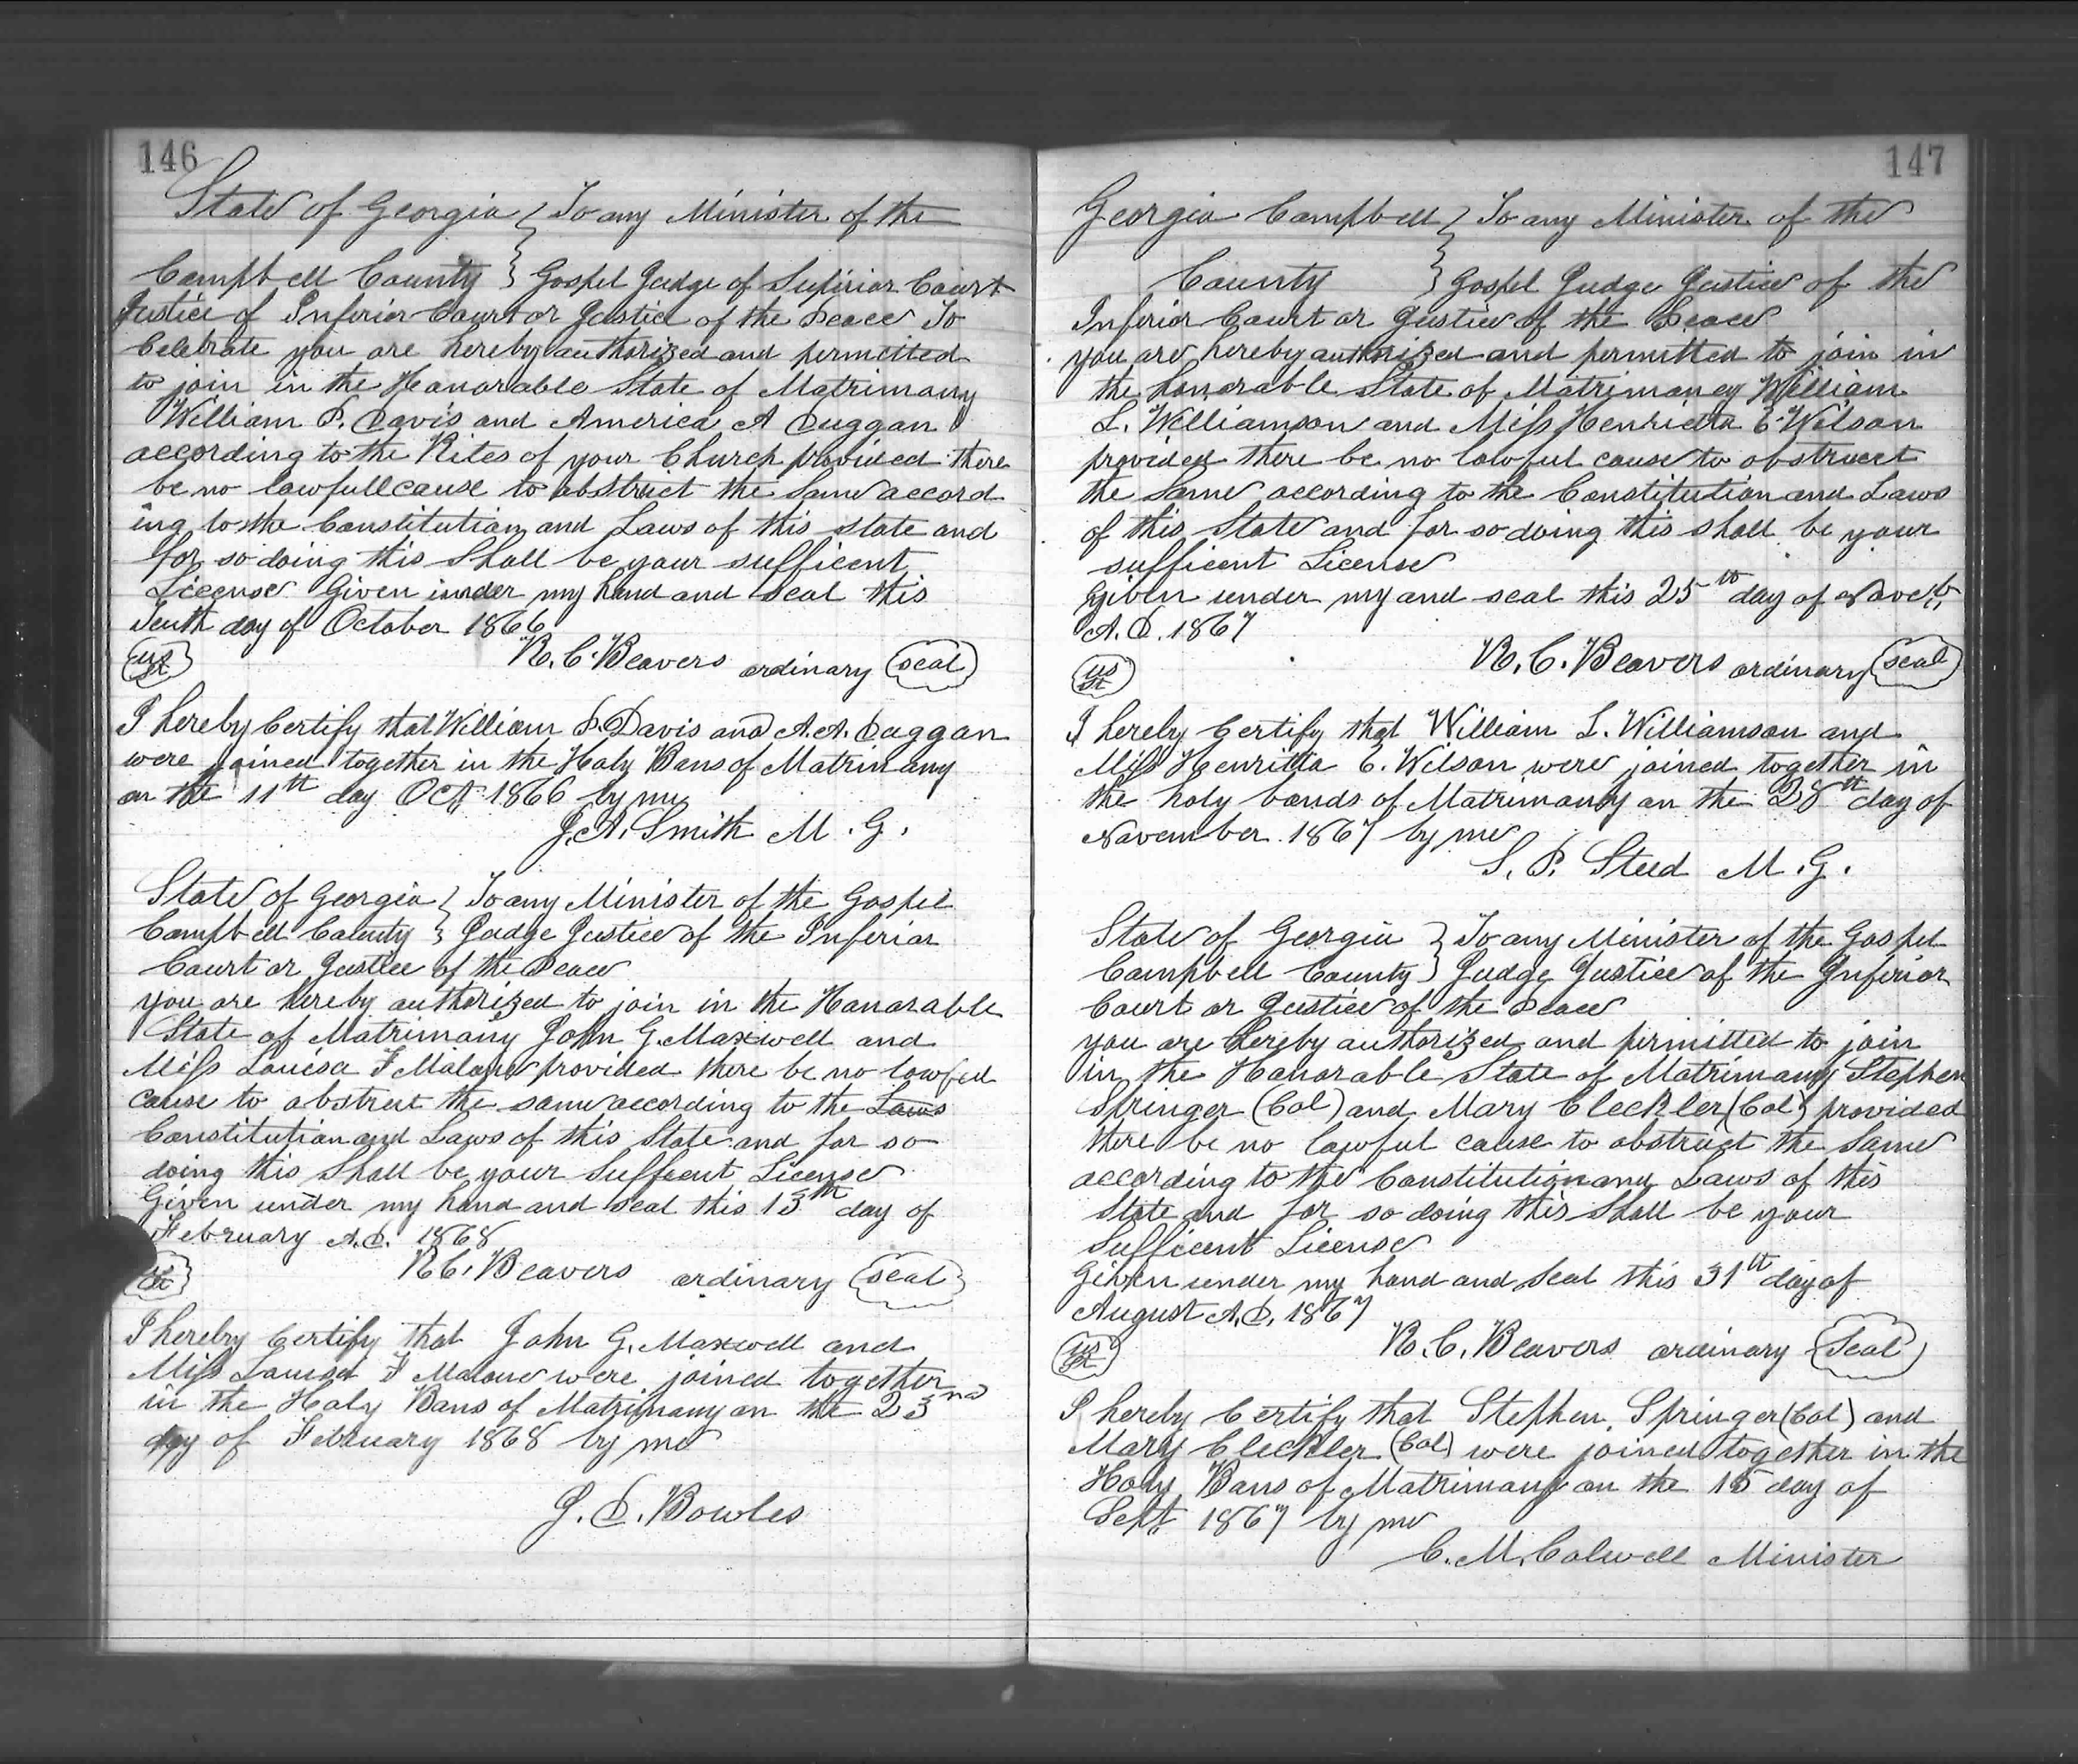 146
State of Georgia } To any Minister of the
Campbell County } Gospel Judge of Superior Court
Justice of Inferior Court or Justice of the Peace To
Celebrate you are hereby authorized and permitted
to join in the Honorable State of Matrimony
William P. Davis and America A Duggan
according to the Rites of your Church provided there
be no lawfull cause to obstruct the Same accord
ing to the Constitution and Laws of this state and
for so doing this Shall be your sufficent
License Given under my hand and seal this
Tenth day of October 1866
US St R. C. Beavers ordinary seal
I hereby Certify that William P. Davis and A. A. Duggan
were joined together in the Holy Bans of Matrimony
on the 11th day Oct 1866 by me
J. A. Smith M. G.
State of Georgia } To any Minister of the Gospel
Campbell County } Judge Justice of the Inferior
Court or Justice of the Peace
you are hereby authorized to join in the Honorable
State of Matrimony John G. Maxwell and
Miss Louisa F Malone provided there be no lawful
cause to obstruct the same according to the Laws
Constitution and Laws of this State and for so
doing this Shall be your Suffecent License
Given under my hand and seal this 13th day of
February A.D. 1868
US St R C. Beavers ordinary seal
I hereby Certify that John G. Maxwell and
Miss Louisa F Malone were joined together
in the Holy Bans of Matrimony on the 23nd
day of February 1868 by me
J. D. Bowles
147
Georgia Campbell } To any Minister of the
County } Gospel Judge Justice of the
Inferior Court or Justice of the Peace
you are hereby authorized and permitted to join in
the honorable State of Matrimoney William
L. Williamson and Miss Henrietta E. Wilson
provided there be no lawful cause to obstruct
the Same according to the Constitution and Laws
of this State and for so doing this shall be your
sufficent License
Given under my and seal this 25th day of Noveb.
A. D. 1867
US St R. C. Beavers ordinary seal
I hereby Certify that William L. Williamson and
Miss Henritta E. Wilson were joined together in
the holy bonds of Matrimony on the 28th day of
November 1867 by me
S. P. Steed M. G.
State of Georgia } To any Minister of the Gospel
Campbell County } Judge Justice of the Inferior
Court or Justice of the Peace
you are hereby authorized and permitted to join
in the Honorable State of Matrimony Stephen
Springer (Col) and Mary Cleckler (Col) provided
there be no lawful cause to obstruct the Same
according to the Constitution and Laws of this
State and for so doing this Shall be your
Sufficent License
Given under my hand and Seal this 31th day of
August A. D. 1867
US St R. C. Beavers ordinary Seal
I hereby Certify that Stephen Springer (Col) and
Mary Cleckler (Col) were joined together in the
Holy Bans of Matrimony on the 15 day of
Sept 1867 by me
C. M. Colwell Minister